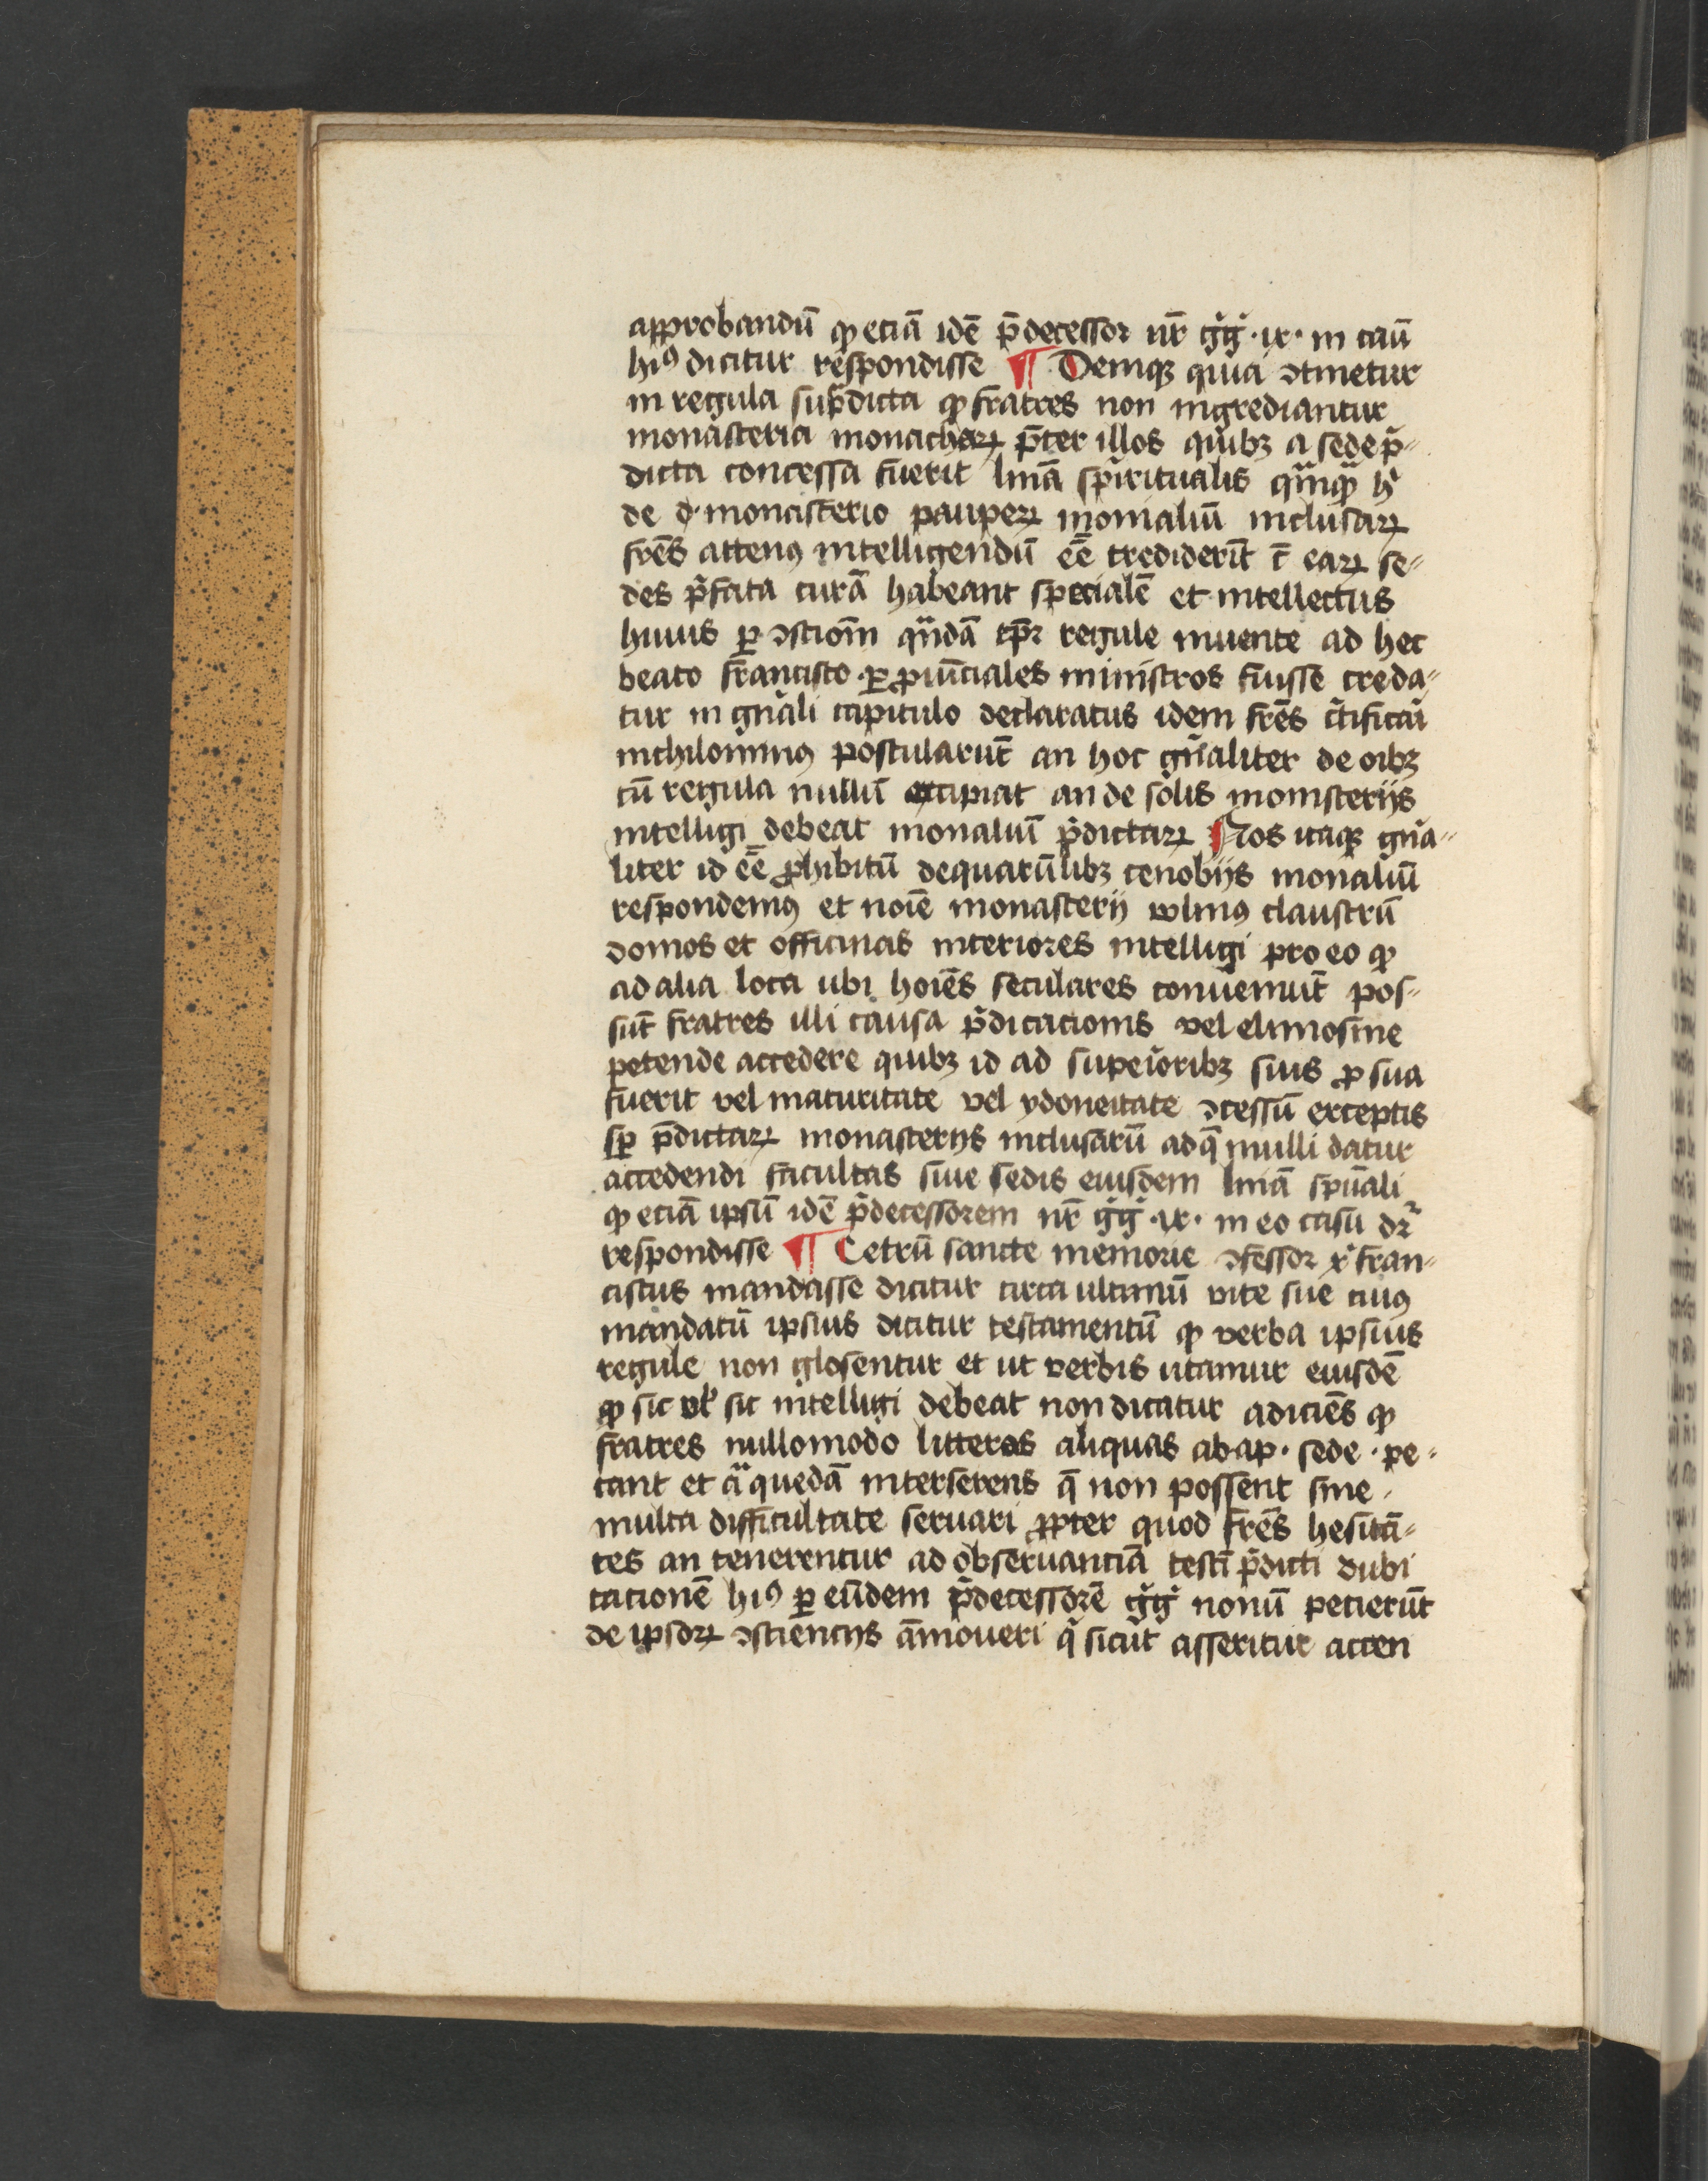 approbandū ꝙ eciā idē p̄decessor nr̄ gͥgͥ ·ix· in cāū
hiꝰ dicitur respondisse ¶ Deniqꝫ quia ↄtinetur
in regula sup̄dicta ꝙ fratres non ingrediantur
monasteria monachaꝝ p̄ter illos quibꝫ a sede p̄⸗
dicta concessa fuerit
de monasterio pauperꝝ monialiū inclusaꝝ
frēs attenꝰ intelligendū eē crediderīt eaꝝ se⸗
des p̄fata curā habeant specialē et intellectus
huius ꝑ
beato francisco ꝑ ꝓuīciales ministros fuisse creda⸗
tur in gn̄ali capitulo declaratus idem frēs c̄tificāi
nichilominꝰ postularūt an hoc gn̄aliter de oibꝫ
cū regula nullū excipiat an de solis monisterijs
intelligi debeat monaliū p̄dictaꝝ ¶ Nos itaqꝫ gn̄a⸗
liter id eē ꝓhibitū de quarūlibꝫ cenobijs monaliū
respondemꝰ et noīe monasterij volmꝰ claustrū
domos et officinas interiores intelligi pro eo ꝙ
ad alia loca ubi hoīes seculares conueniūt pos⸗
sūt fratres illi causa p̄dicacionis vel elimosine
petende accedere quibꝫ id ad supeīoribꝫ suis ꝓ sua
fuerit vel maturitate vel ydoneitate ↄcessū exceptis
sp̄ p̄dictaꝝ monasterijs inclusarū ad q̄ nulli datur
accedendi facultas sine sedis eiusdem līnā spūali
ꝙ eciā ipsū idē p̄decessorem nr̄ gͥgͥ ·ix· in eo casu dr̄
respondisse ¶ Cetrū sancte memorie ↄfessor xͥ fran⸗
ciscus mandasse dicitur circa ultimū vite sue cuiꝰ
mandatū ipsius dicitur testamentū ꝙ verba ipsius
regule non glosentur et ut verbis utamur eiusdē
ꝙ sic vl̕ sic intelligi debeat non dicatur adiciēs ꝙ
fratres nullomodo litteras aliquas ab ap· sede · pe⸗
tant et aͣ quedā interserens q̄ non possent sine
multa difficultate seruari ꝓpter quod frēs hesitā⸗
tes an tenerentur ad obseruantiā testī p̄dicti dubi
tacionē hiꝰ ꝑ eūdem p̄decessorē gͥgͥ nonū petierūt
de ipsoꝝ ↄsciencijs āmoueri q̄ sicut asseritur atten